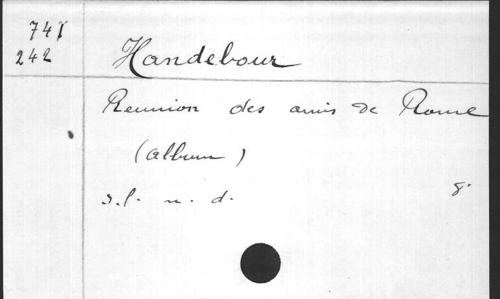 741
242
Handebour
Reunion des amis de Rome
(album)
s.l. n. d. 8.